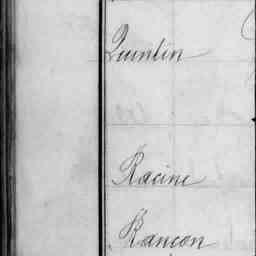 Quintin
Racine
Rancon